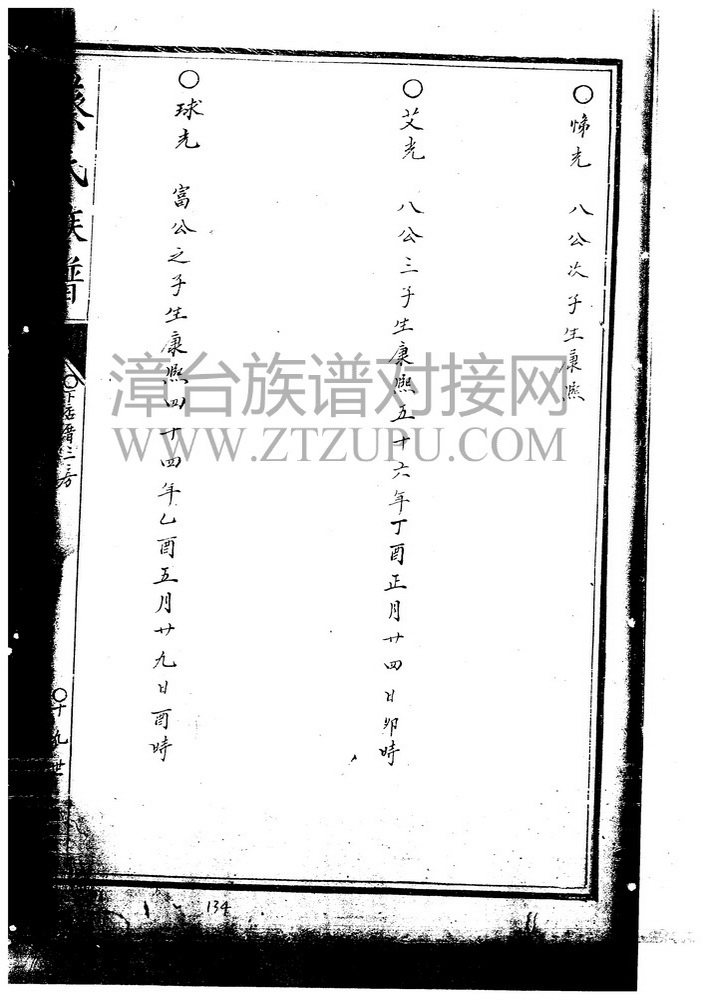 ○悌光　八公次子生康熙
○艾光　八公三子生康熙五十六年丁酉正月廿四日卯時
○球光　富公之子生康熙四十四年乙酉五月廿九日酉時
氏族譜
○下 厝三房
○十九世
134
漳台族谱对接网
WWW.ZTZUPU.COM